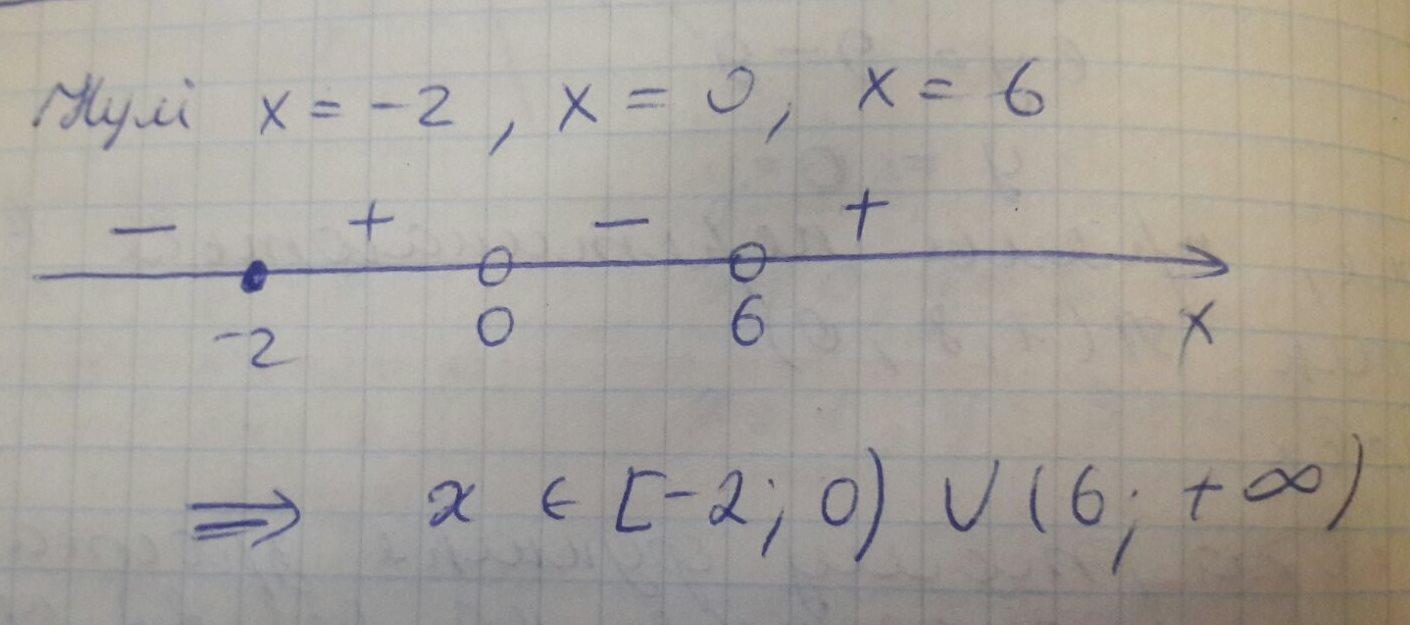 Нулі x = -2, x = 0, x = 6
− + − +
-2 0 6 x
⇒ x ∈ [-2; 0) ∪ (6; +∞)